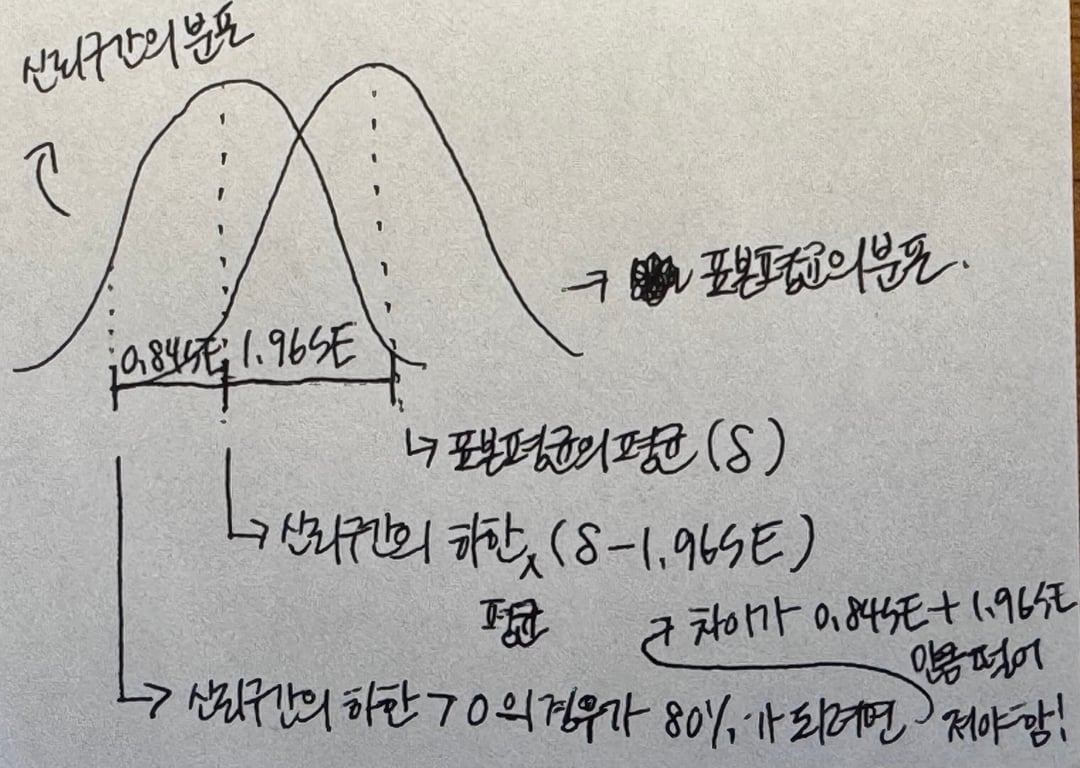 신뢰구간의 분포
0.84SE 1.96SE
→ 표본평균의 분포.
↳ 표본평균의 평균 (δ)
↳ 신뢰구간의 하한 (δ-1.96SE)
평균
→ 차이가 0.84SE+1.96SE
만큼 떨어
↳ 신뢰구간의 하한 > 0 의 경우가 80%가 되려면
져야 함!